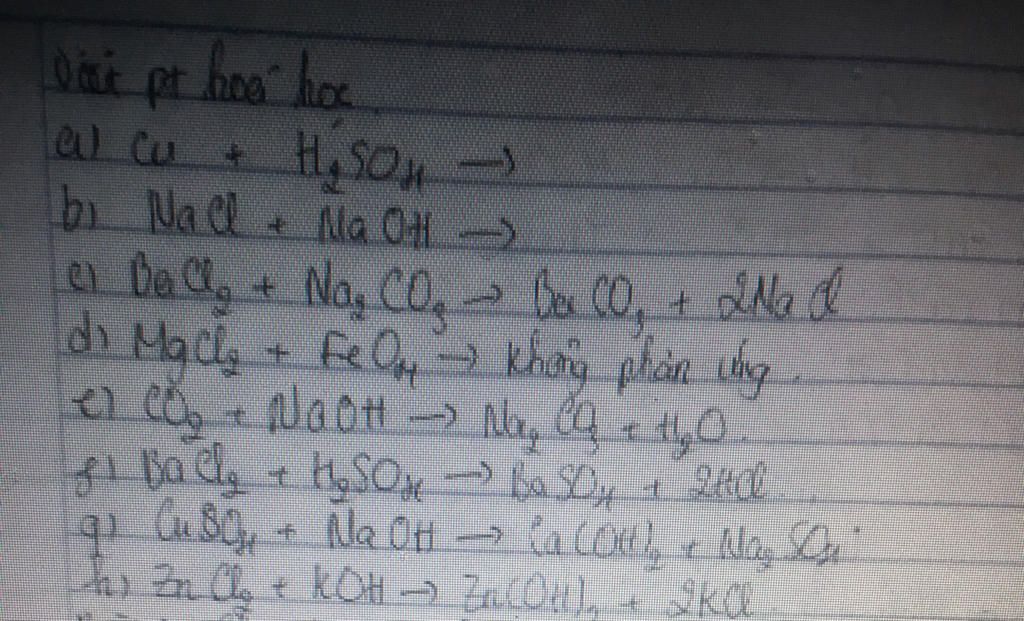 Viết pt hoá học
a) Cu + H₂SO₄ →
b) NaCl + NaOH →
c) BaCl₂ + Na₂CO₃ → BaCO₃ + 2NaCl
d) MgCl₂ + FeO₄ → không phản ứng.
e) CO₂ + NaOH → Na₂CO₃ + H₂O.
f) BaCl₂ + H₂SO₄ → BaSO₄ + 2HCl.
g) CuSO₄ + NaOH → Ca(OH)₂ + Na₂SO₄.
h) ZnCl₂ + KOH → Zn(OH)₂ + 2KCl